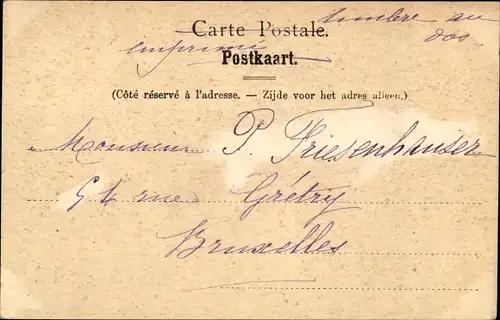 Carte Postale. timbre au
imprimé dos
Postkaart.
(Côté réservé à l'adresse. — Zijde voor het adres alleen.)
Monsieur P. Friesenhauser
54 rue Grétry
Bruxelles